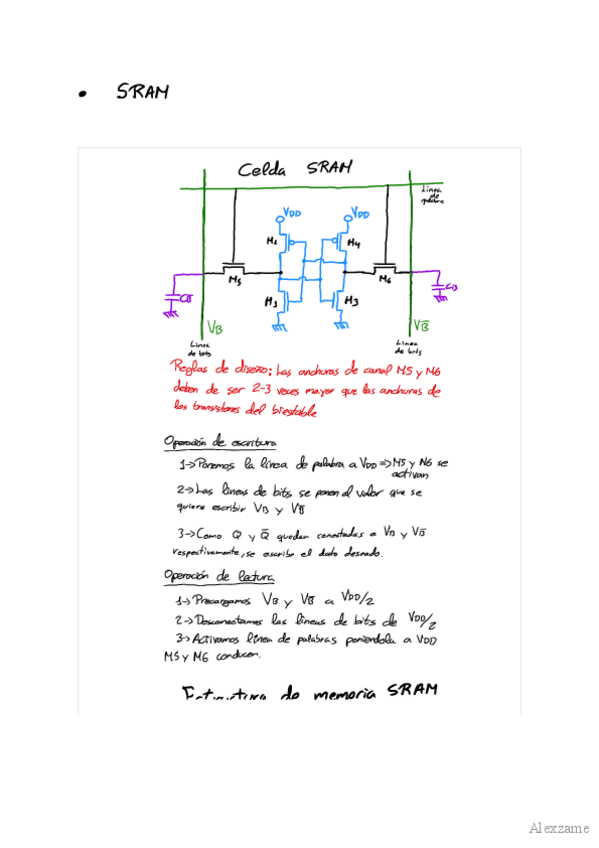 • SRAM
Celda SRAM
Linea
de
palabra
VDD VDD
M2 M4
M5 M6
CB CB
M1 M3
VB VB̅
Linea
de bits
Linea
de bits
Reglas de diseño: Las anchuras de canal M5 y M6
deben de ser 2-3 veces mayor que las anchuras de
los transistores del biestable
Operación de escritura
1-> Ponemos la línea de palabra a VDD => M5 y M6 se
activan
2-> Las líneas de bits se ponen al valor que se
quiere escribir VB y VB̅
3-> Como Q y Q̅ quedan conectadas a VB y VB̅
respectivamente, se escribe el dato deseado.
Operación de lectura
1-> Precargamos VB y VB̅ a VDD/2
2-> Desconectamos las líneas de bits de VDD/2
3-> Activamos línea de palabras poniendola a VDD
M5 y M6 conducen.
Estructura de memoria SRAM
Alexzame